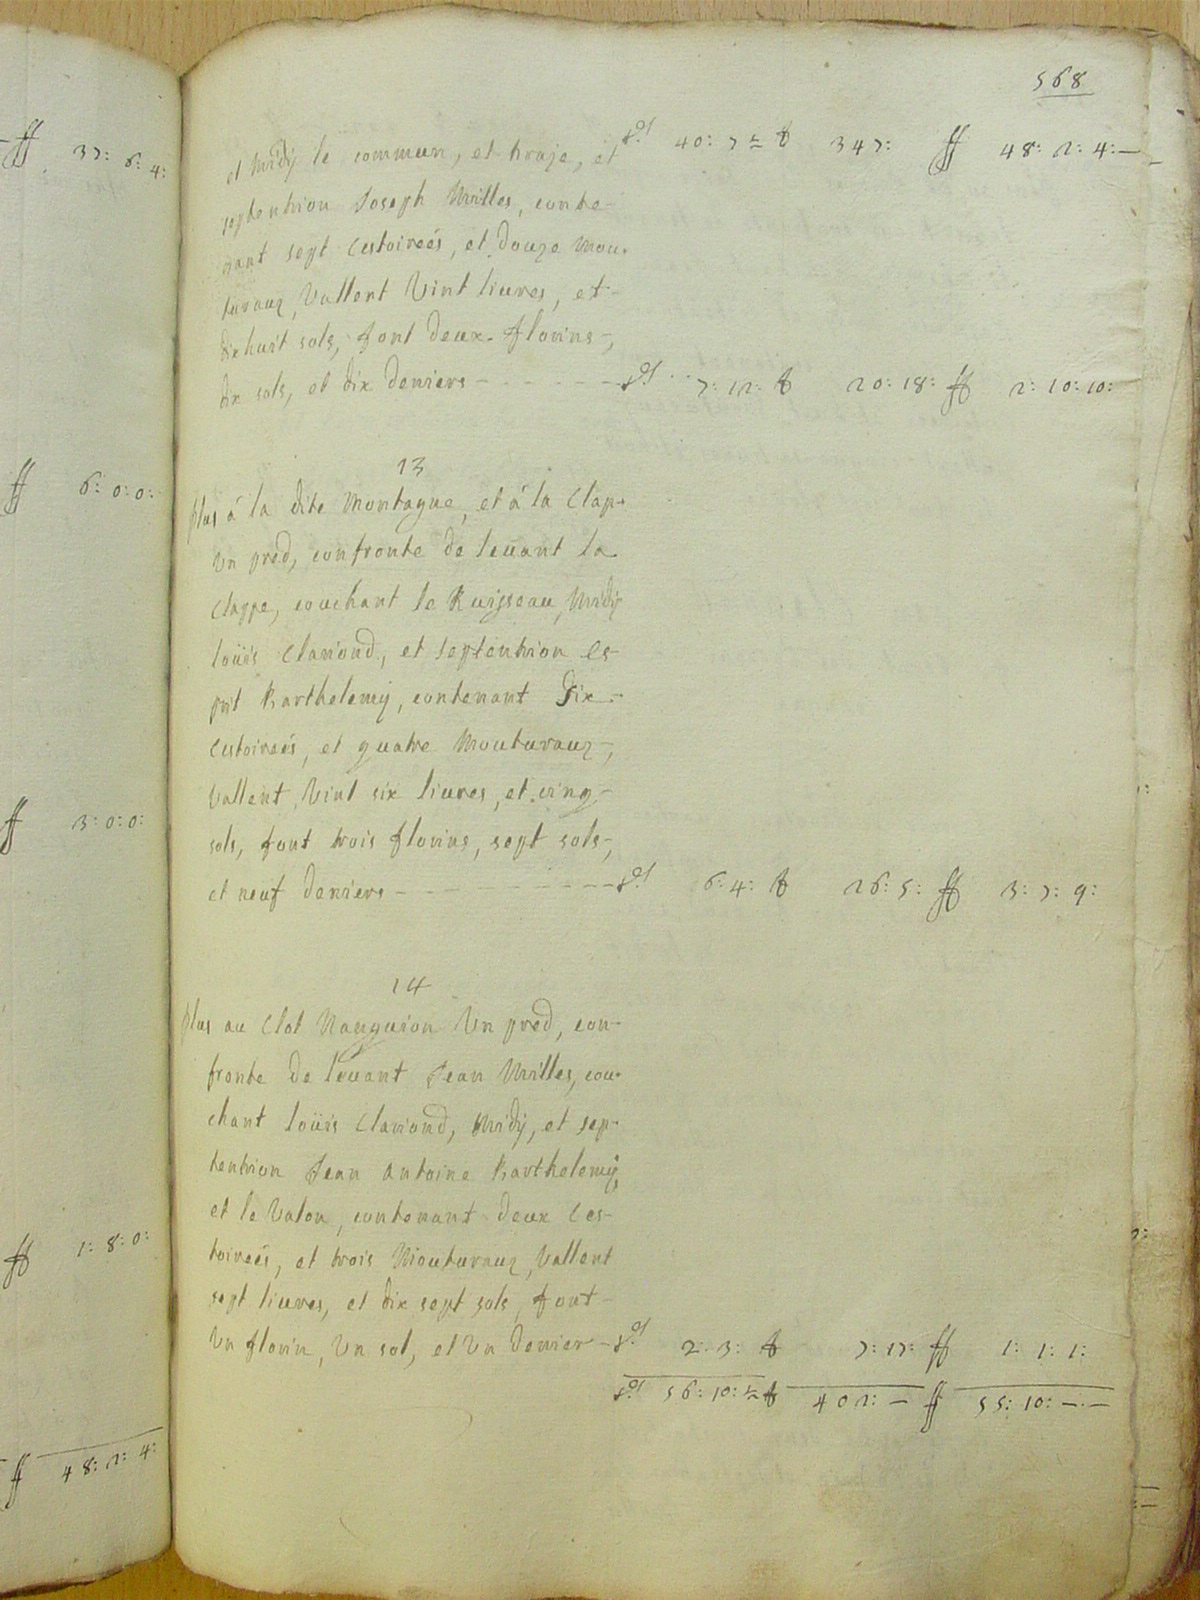 568
et midÿ le commun, et traje, et
septentrion Joseph Milles, conte-
nant sept cestoireés, et douze mou-
turauz, Vallent Vint liures, et
dixhuit sols, font deux florins,
dix sols, et dix deniers
40: 7 347: ff 48: 2: 4:
7: 12: 20: 18: ff 2: 10: 10:
13
plus á la dite Montagne, et á la Clap-
Vn pred, confronte de leuant la
Clappe, couchant le Ruisseau, Midÿ
loüis Clariond, et septentrion Es-
prit Barthelemÿ, contenant dix
cestoireés, et quatre Mouturauz,
Vallent Vint six liures, et cinq
sols, font trois florins, sept sols,
et neuf deniers
6: 4: 26: 5: ff 3: 7: 9:
14
plus au Clot Vn pred, con-
fronte de leuant Jean Milles, cou-
chant loüis Clariond, Midÿ, et sep-
tentrion Jean Antoine Barthelemÿ,
et le Valon, contenant deux Ces-
toireés, et trois Mouturauz, Vallent
sept liures, et dix sept sols, font
Vn florin, Vn sol, et Vn denier
2: 3: 7: 17: ff 1: 1: 1:
56: 10: 402: — ff 55: 10: —
ff 37: 6: 4:
ff 6: 0: 0:
ff 3: 0: 0:
ff 1: 8: 0:
ff 48: 2: 4: